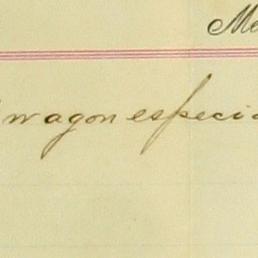 Me
wagon especia